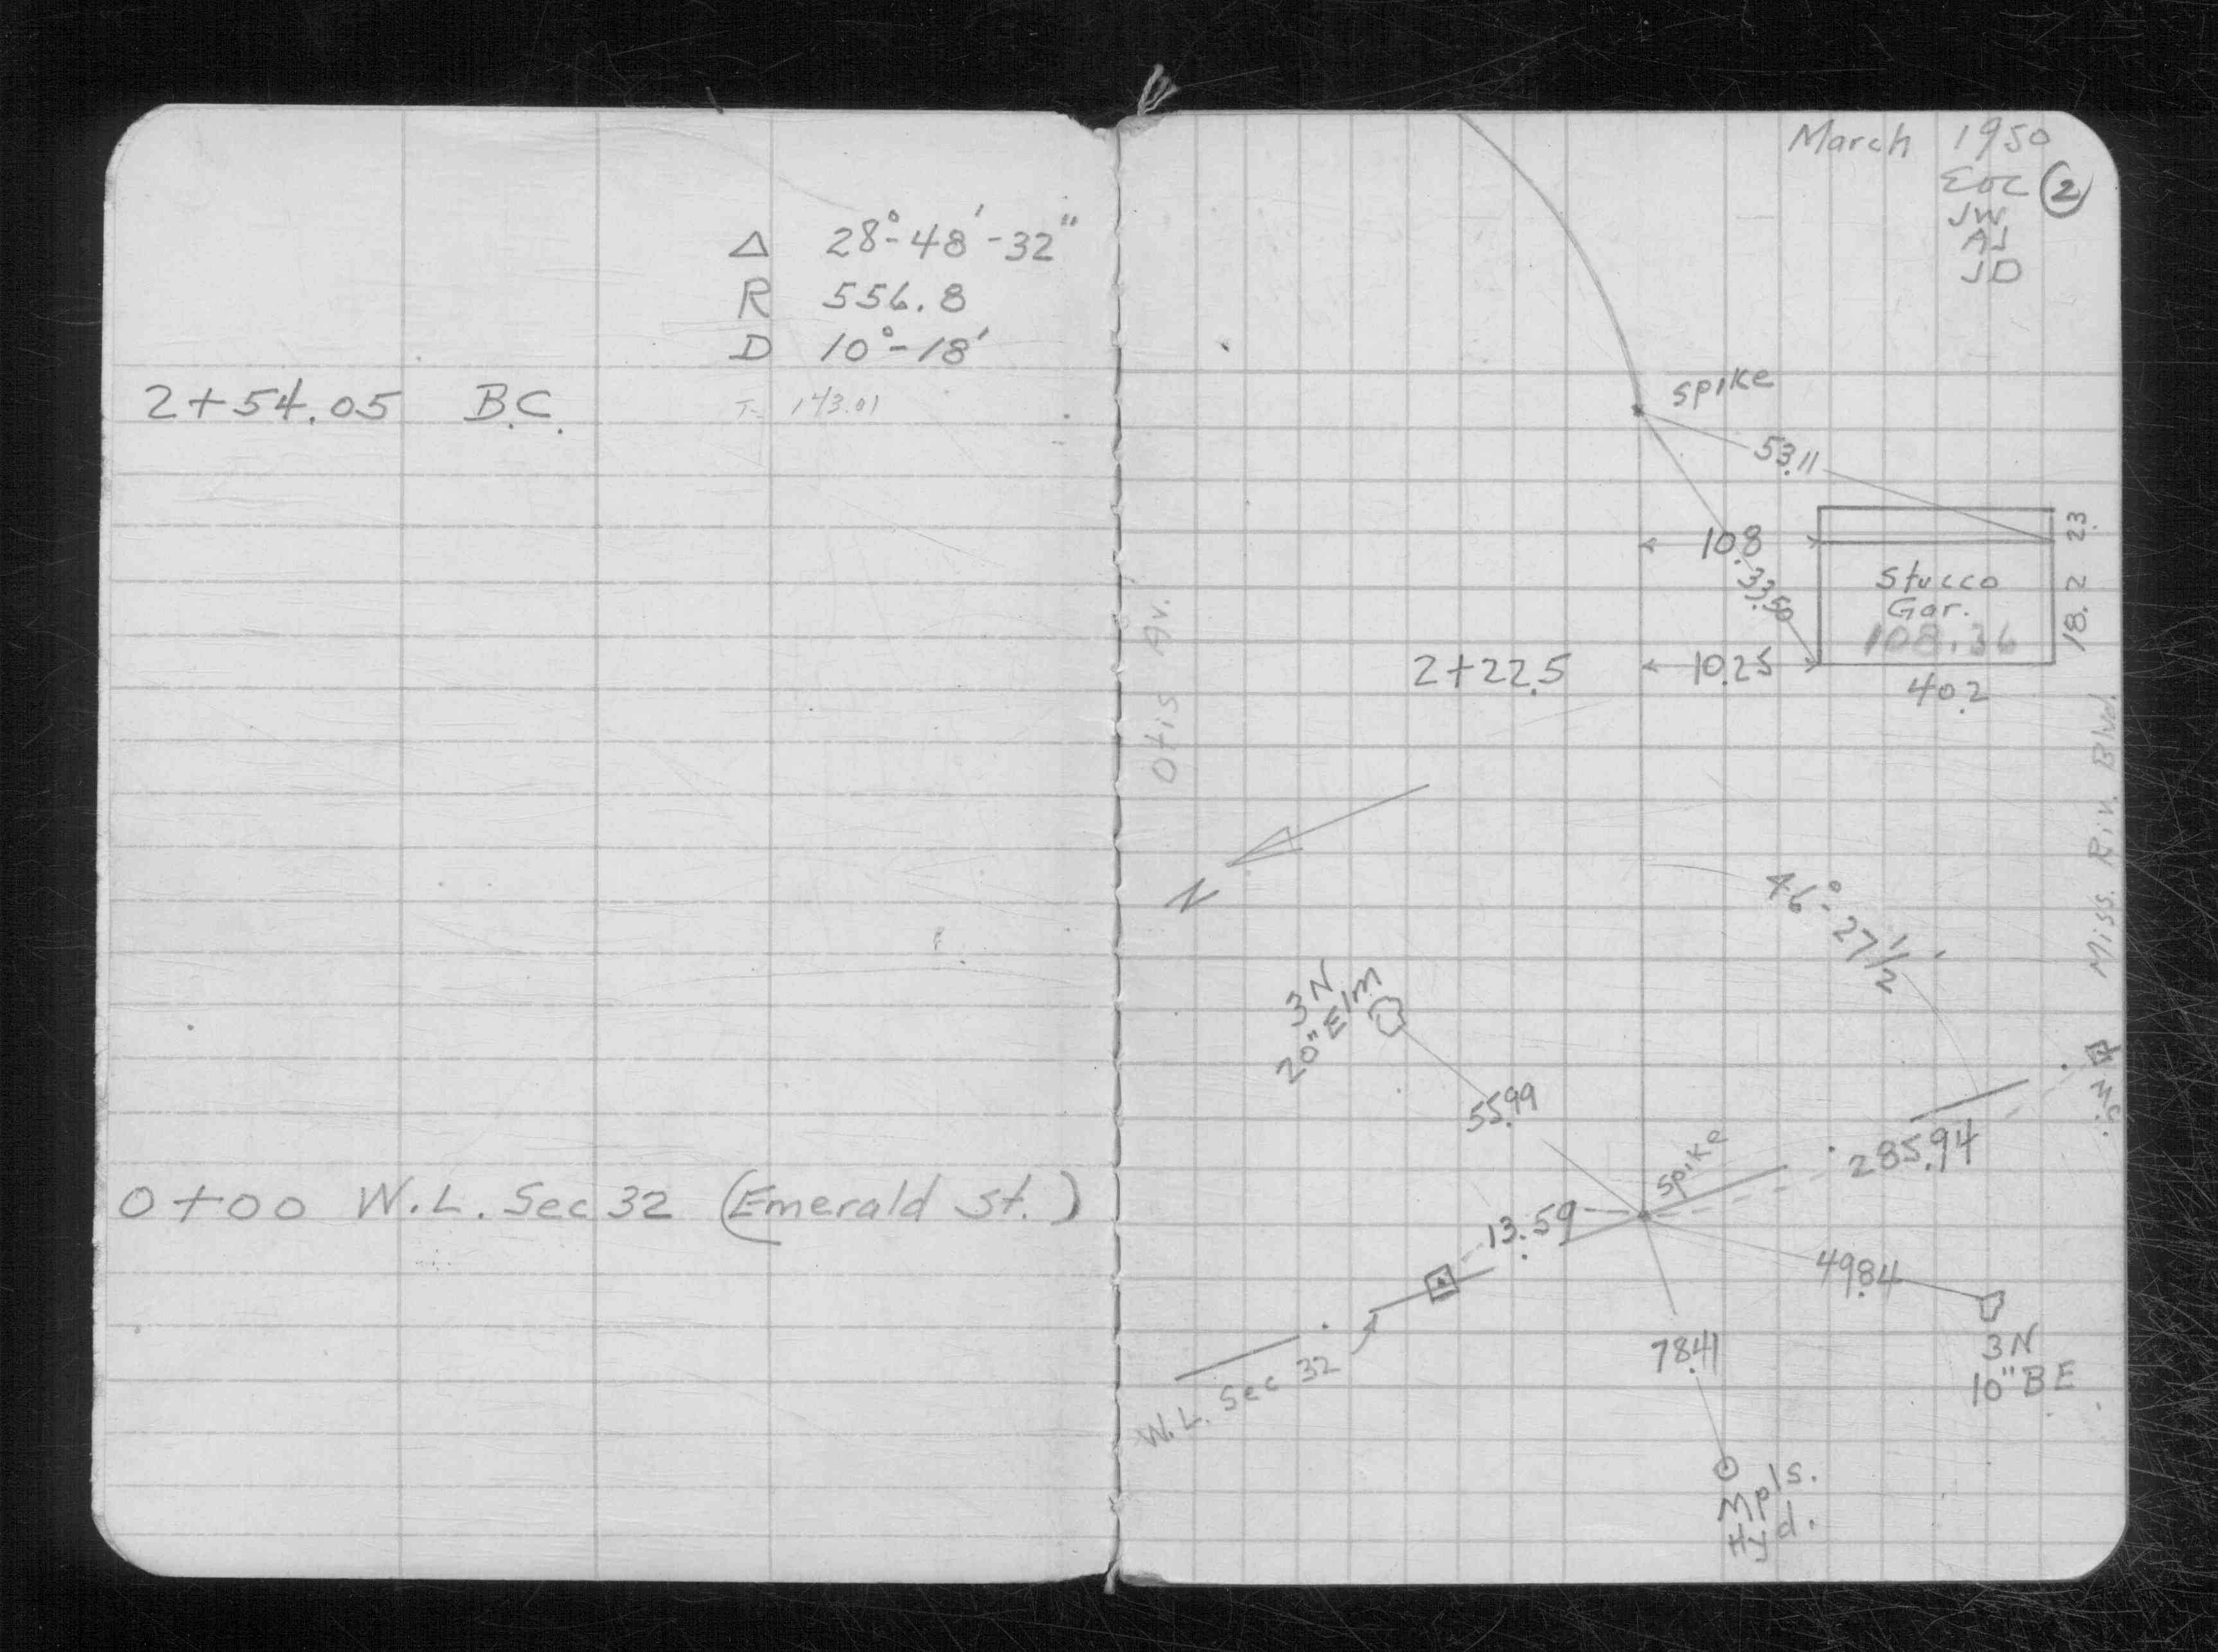 Δ 28°-48'-32"
R 556.8
D 10°-18'
2+54.05 B.C. T= 143.01
0+00 W.L. Sec 32 (Emerald St.)
March 1950
EOC 2
JW
AJ
JD
spike
53.11
10.8
33.50
23.
Stucco
Gar.
108.36
18.2
2+22.5
10.25
40.2
Otis Av.
Miss. Riv. Blvd.
N
46°-27 1/2'
3N
20" Elm
55.99
spike
285.94
13.59
49.84
W.L. Sec 32
78.41
3N
10" BE
Mpls.
Hyd.